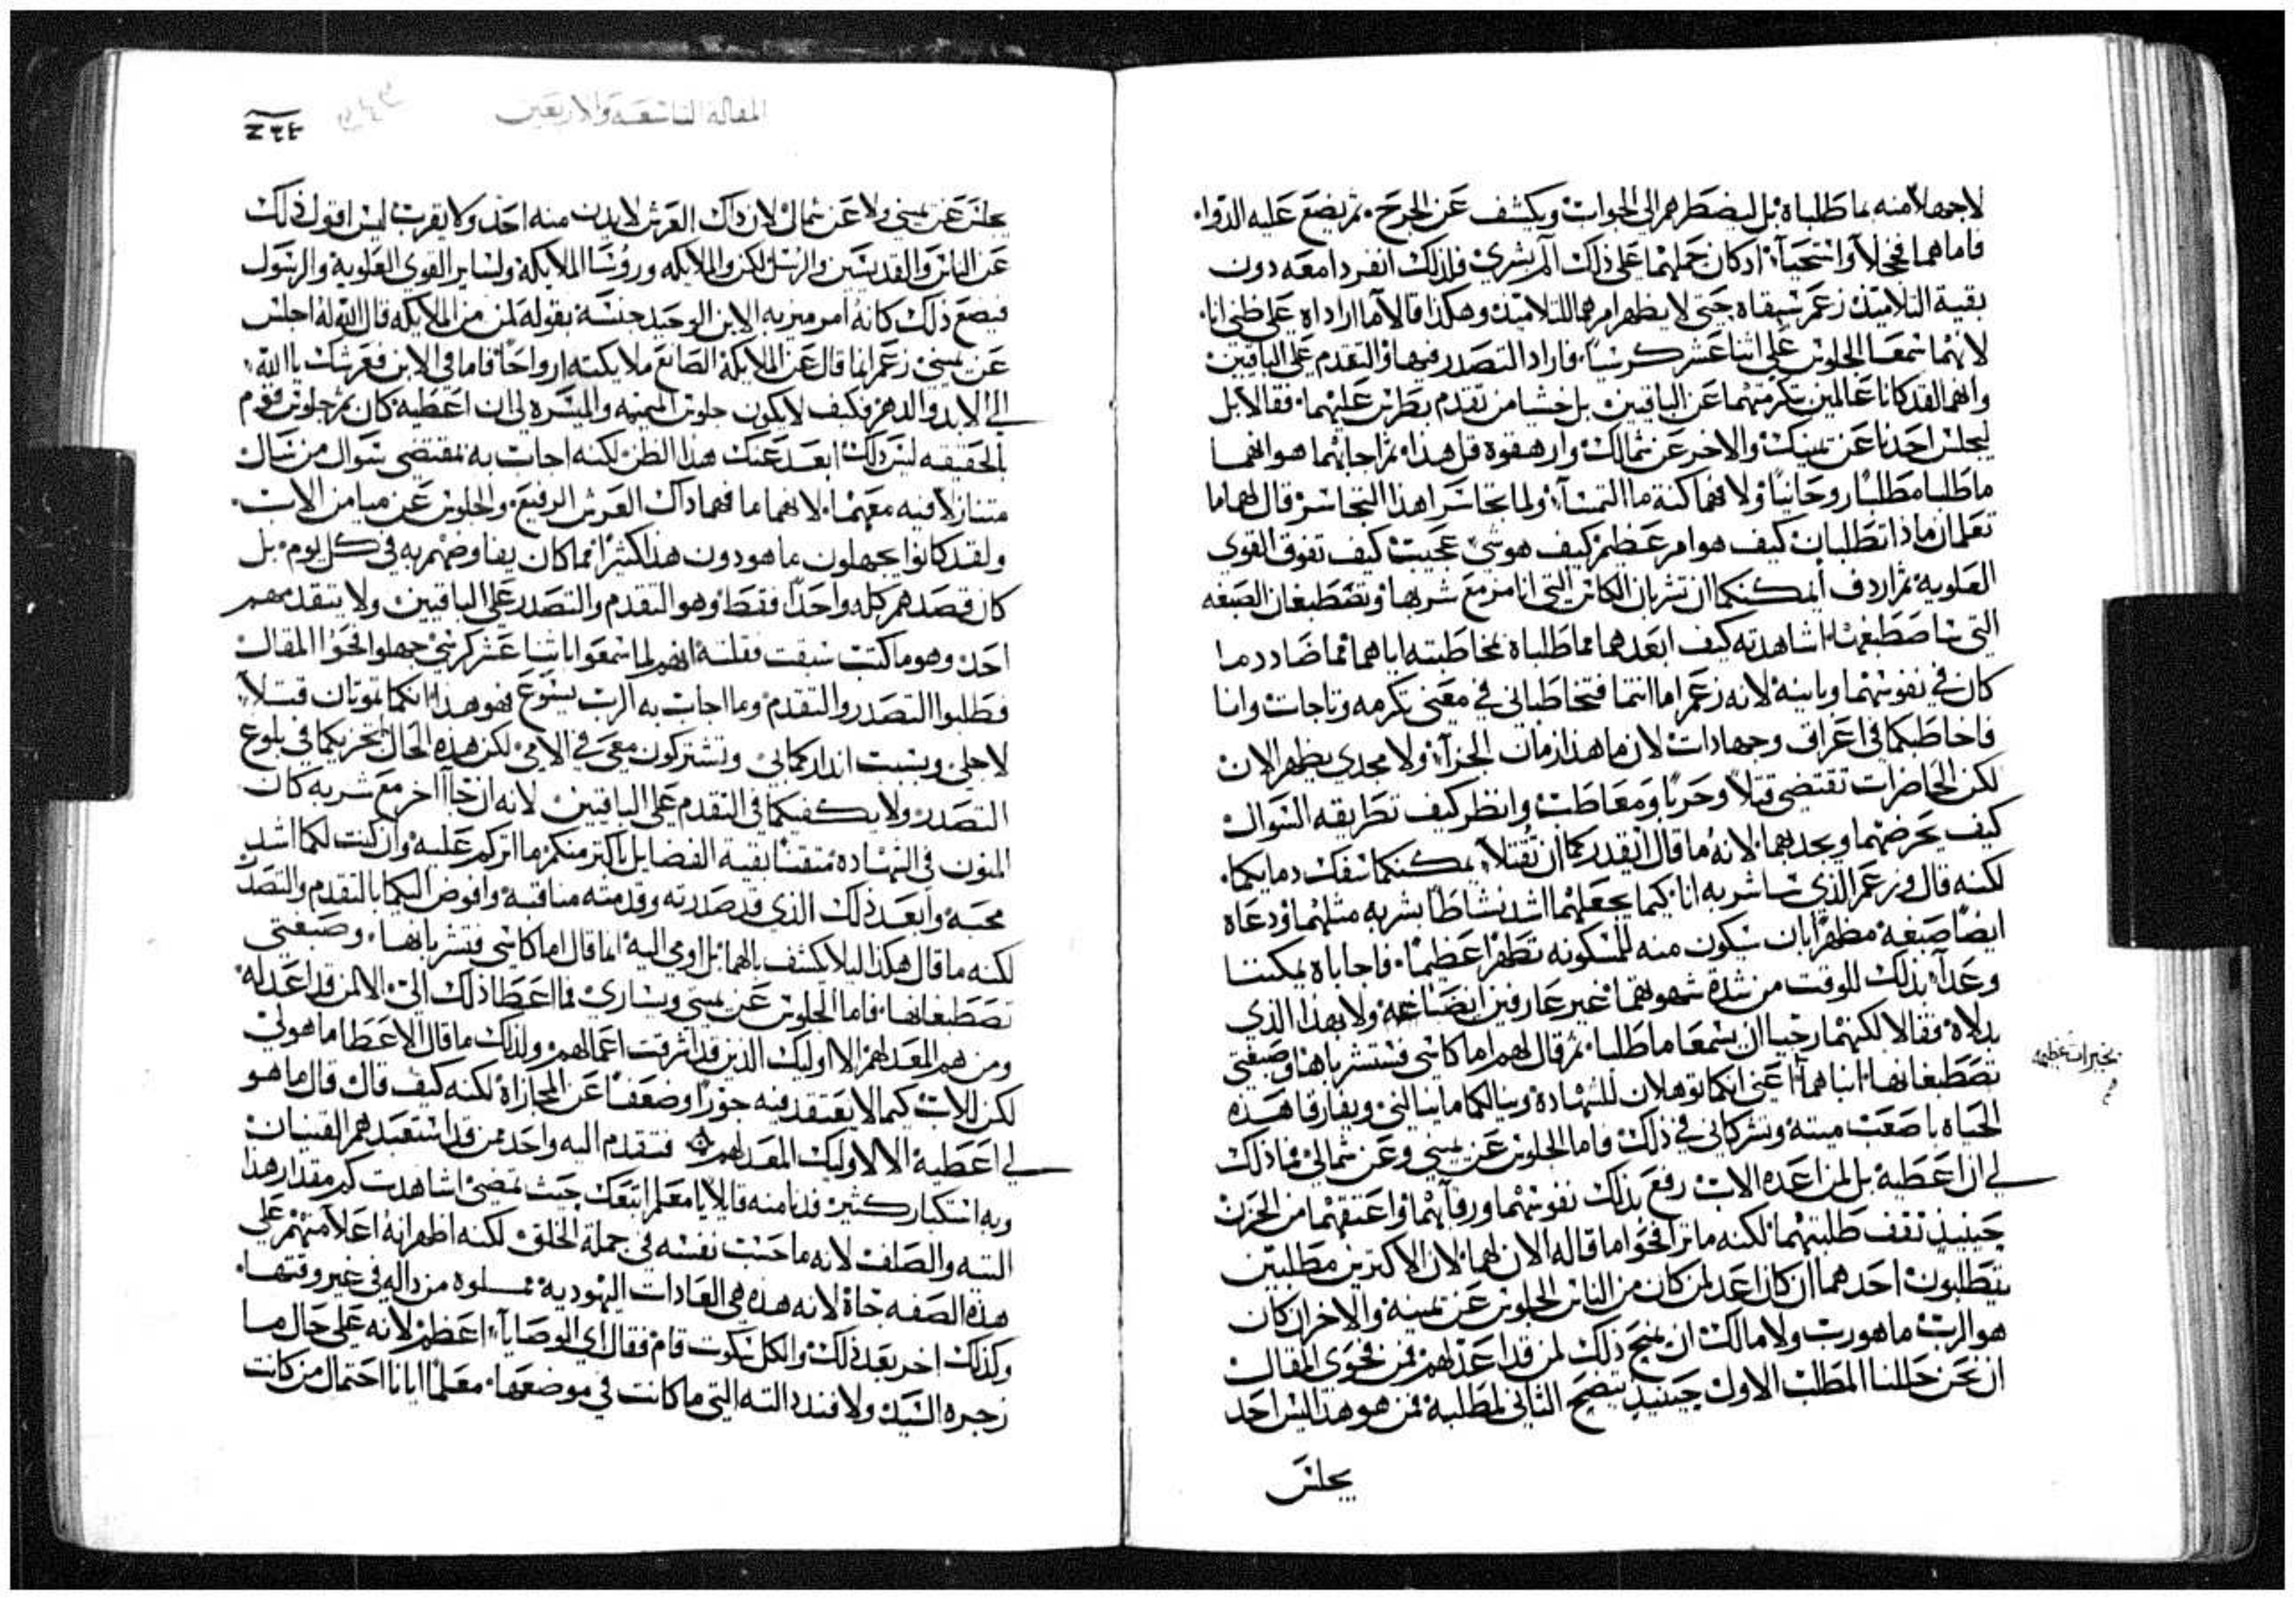 لاجهلاً منه بما طلباه بل ليضطرهم الى الجواب ويكشف عن الجرح. ثم يضع عليه الدوا.
فاما هما فخجلا واستحيآ اذ كان حملهما على ذلك الم بشري فلذلك انفردا معه دون
بقية التلاميذ زعم سبقاه حتى لا يظهر امرهما للتلاميذ وهكذا قالا ما اراداه على ظني انا.
لانهما سمعا الجلوس على اثنا عشر كرسيا. فارادا التصدر فيها والتقدم على الباقيين
وانهما لقد كانا عالمين بتكرمتهما عن الباقيين بل خشيا من تقدم بطرس عليهما. فقالا بل
ليجلس احدنا عن يمينك والاخر عن شمالك وارهقوه قل هذا. ثم اجابهما هو انهما
ما طلبا مطلبا روحانيا ولا فهما كنه ما التمسا. ولما تجاسرا هذا التجاسر قال لهما ما
تعلمان ماذا تطلبان كيف هو امر عظيم كيف هو شي عجيب كيف تفوق القوى
العلوية ثم اردف ايمكنكما ان تشربان الكاس التي انا مزمع شربها وتصطبغان الصبغه
التي ساصطبغها. اشاهدته كيف ابعدهما مما طلباه بمخاطبته اياهما مما ضادد ما
كان في نفوسهما وباينه لانه زعم اما انتما فتخاطباني في معنى تكرمه وتاجات وانا
فاخاطبكما في اعراق وجهادات لان ما هذا زمان الجزآ ولا مجدي يظهر الان
لكن الحاضرات تقتضي قتلا وحربا ومعاطب وانظر كيف تطريقه السوال
كيف يحرضهما ويجذبهما لانه ما قال اتقدركما ان تقتلا يمكنكما سفك دمايكما.
لكنه قال زعم الذي ساشربه انا كيما يجعلهما اشد نشاطا بشربه مثلهما ودعاه
ايضا صبغه مظهرا بان سيكون منه للمسكونه تطهرا عظيما. فاجاباه يمكننا
وعدآ بذلك للوقت من شدة شهوتهما غير عارفين ايضا غه ولا بهذا الذي
بدلاه فقالا لكنهما رجيا ان يسمعا ما طلبا. ثم قال لهم اما كاسي فستشرباها وصبغتي
تصطبغانها. انباهما اعني انكما توهلان للشهادة وينالكما ما ينالني وتفارقا هذه
الحياه باصعب ميتة وتشركاني في ذلك. فاما الجلوس عن يميني وعن شمالي فما ذلك
لي ان اعطيه بل لمن اعده الاب رفع بذلك نفوسهما ورقآهما واعتقهما من الحزن
حينيذ تقف طلبتهما لكنه ما ترا فحوا ما قاله الان لهما لان الاكترين مطلبين
يتطلبون احدهما ان كان اعد لمن كان من الناس الجلوس عن يمينه والاخر ان كان
هو الرب ما هو رب ولا مالك ان يمنح ذلك لمن قد اعد لهم فمن فحوى المقال
ان نحن حللنا المطلب الاول حينيذ يتضح الثاني لمطلبيه فمن هو هذا ليس احد
يجلس
بخبرات عظيمه
المقالة التاسعة والاربعين
٢٤٤
يجلس عن يميني ولا عن شمالي لان ذاك العرش لا يدن منه احد ولا يقرب ليس اقول ذلك
عن الناس والقديسين والرسل لكن والملايكه وروسا الملايكه ولساير القوى العلوية والرسول
فيضع ذلك كانه امر ميز به الابن الوحيد جنسه بقوله لمن من الملايكه قال الله له اجلس
عن يميني زعم انما قال عن الملايكة الصانع ملايكته ارواحا فاما في الابن فعرشك يا الله
الى الابد والدهر فكيف لا يكون جلوس الميمنه والميسره لي ان اعطيه كان ثم جلوس قوم
بالحقيقه ليس ذلك ابعد عنك هذا الظن لكنه اجاب به بمقتضى سوال من سال
متنازلا فيه معهما. لانهما ما فهما ذاك العرش الرفيع. والجلوس عن ميامن الاب.
ولقد كانوا يجهلون ما هو دون هذا كثيرا مما كان يفاوضهم به في كل يوم. بل
كان قصدهم كله واحدا فقط وهو التقدم والتصدر على الباقيين ولا يتقدمهم
احد وهو ما كتب سبقت فقلته انهم لما سمعوا باثنا عشر كرسي جهلوا فحوا المقال
فطلبوا التصدر والتقدم وما اجاب به الرب يسوع فهو هذا انكما تموتان قتلاً
لاجلي وبسبب انذاركما بي وتشتركون معي في الامي لكن هذه الحال لا تجزيكما في بلوغ
التصدر ولا يكفيكما في التقدم على الباقيين لانه ان جآ اخر مع شربه كان
المنون في الشهادة مقتنا بقية الفضايل باكتر منكم ما اتركم عليه وان كنت لكما اشد
محبه وابعد ذلك الذي قد صدرته وقدمته مناقبه وافوض اليكما بالتقدم والتصدر
لكنه ما قال هكذا ليلا يكشف بالهما بل اومي اليه انما قال اما كاسي فتشربانها. وصبغتي
تصطبغانها. فاما الجلوس عن يميني ويساري فما اعطا ذلك الي الا لمن قد اعد له
ومن هم المعد لهم الا اوليك الذين قد اشرقت اعمالهم ولذلك ما قال الاعطا ما هو لي
لكن للاب كيما لا يعتقد فيه جورا وضعفا عن المجازاة لكنه كيف قال قال ما هو
لي اعطيه الا لاوليك المعد لهم ۞ فتقدم اليه واحد ممن قد استعبدهم القنيان
وبه استكبار كثير فدنا منه قايلا يا معلم اتبعك حيث تمضي اشاهدت كم مقدار هذا
التيه والصلف لانه ما حسب نفسه في جملة الخلق لكنه اظهر انه اعلا منهم على
هذه الصفه جاه لانه هذه هي العادات اليهودية مملوه من داله في غير وقتها.
وكذلك اخر بعد ذلك والكل سكوت قام فقال اي الوصايا اعظم لانه على حال ما
زجره السيد ولا فند دالته التي ما كانت في موضعها. معلما ايانا احتمال من كانت